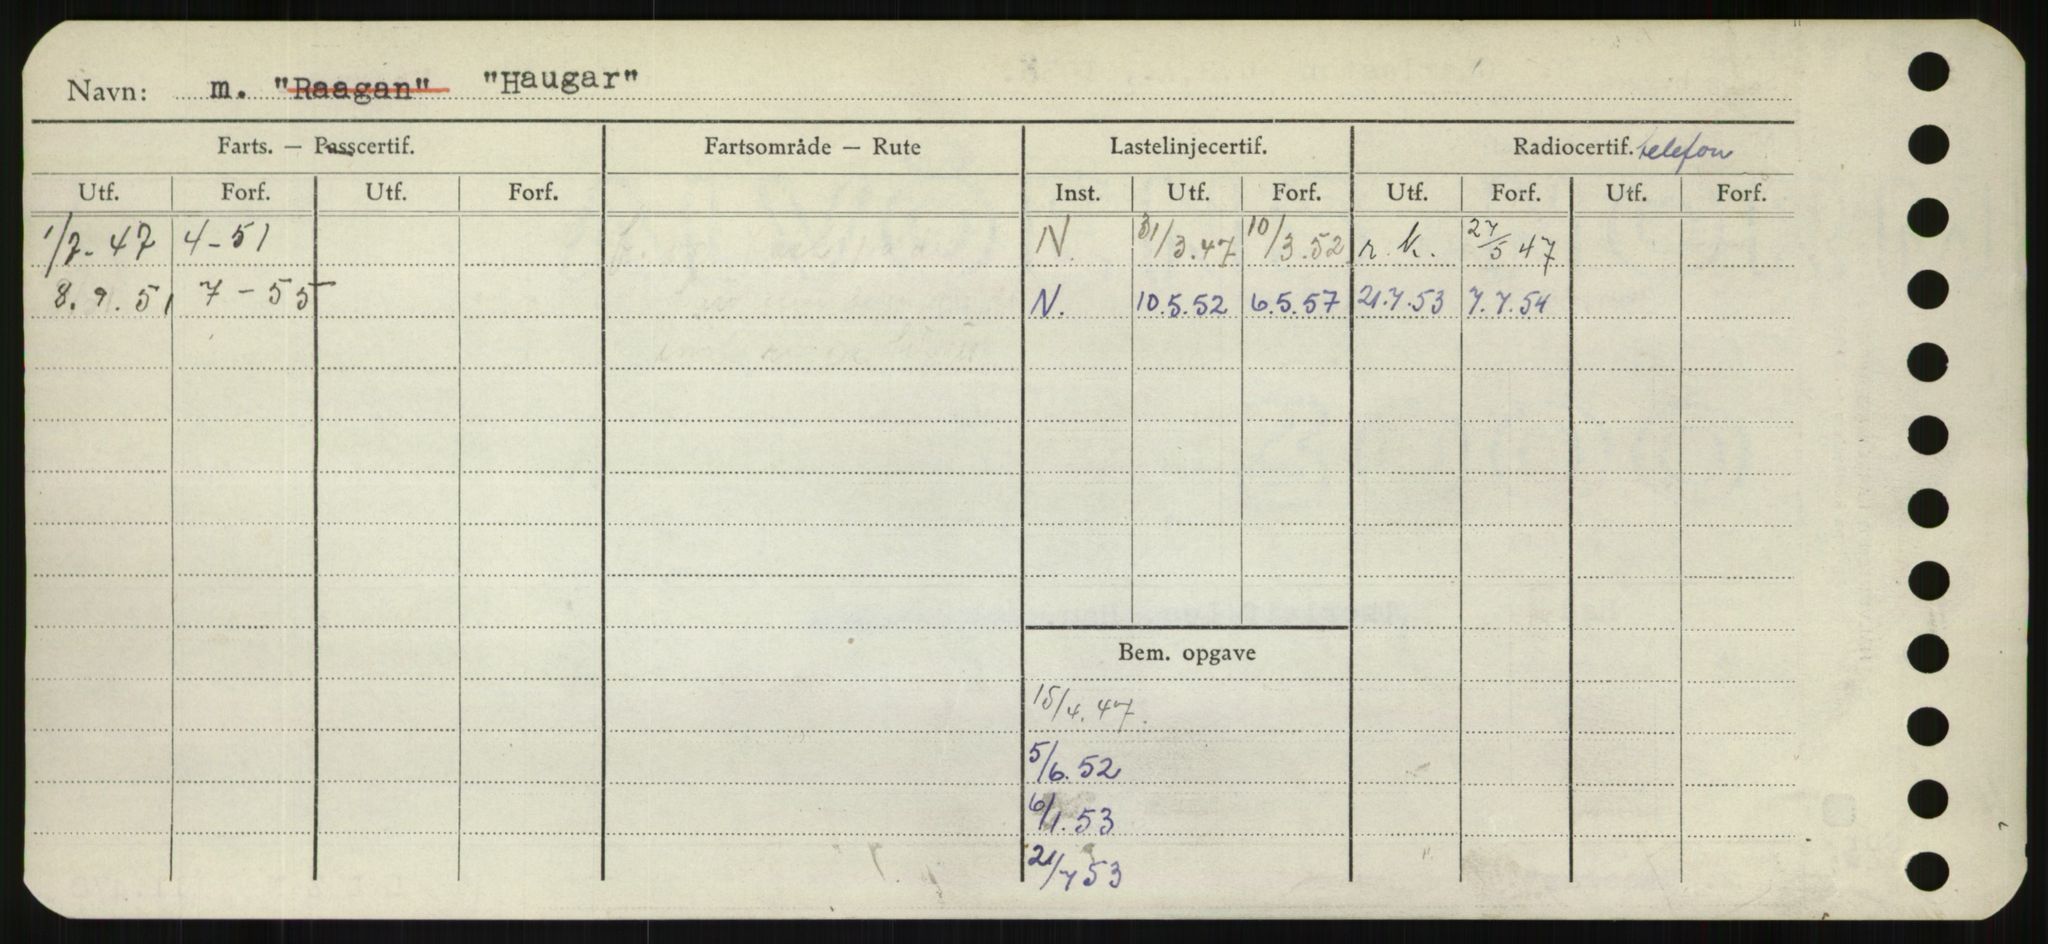 Navn: m. "Raagan" "Haugar"
Farts. — Passcertif. Fartsområde — Rute Lastelinjecertif. Radiocertif. telefon
Utf. Forf. Utf. Forf. Inst. Utf. Forf. Utf. Forf. Utf. Forf.
1/7-47 4-51 N. 31/3.47 10/3.52 r.k. 27/5 47
8.9.51 7-55 N. 10.5.52 6.5.57 21.7.53 7.7.54
Bem. opgave
15/4.47.
5/6.52
6/1.53
21/7 53